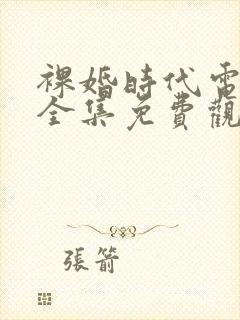 裸婚時代電
全集免費觀
張箭